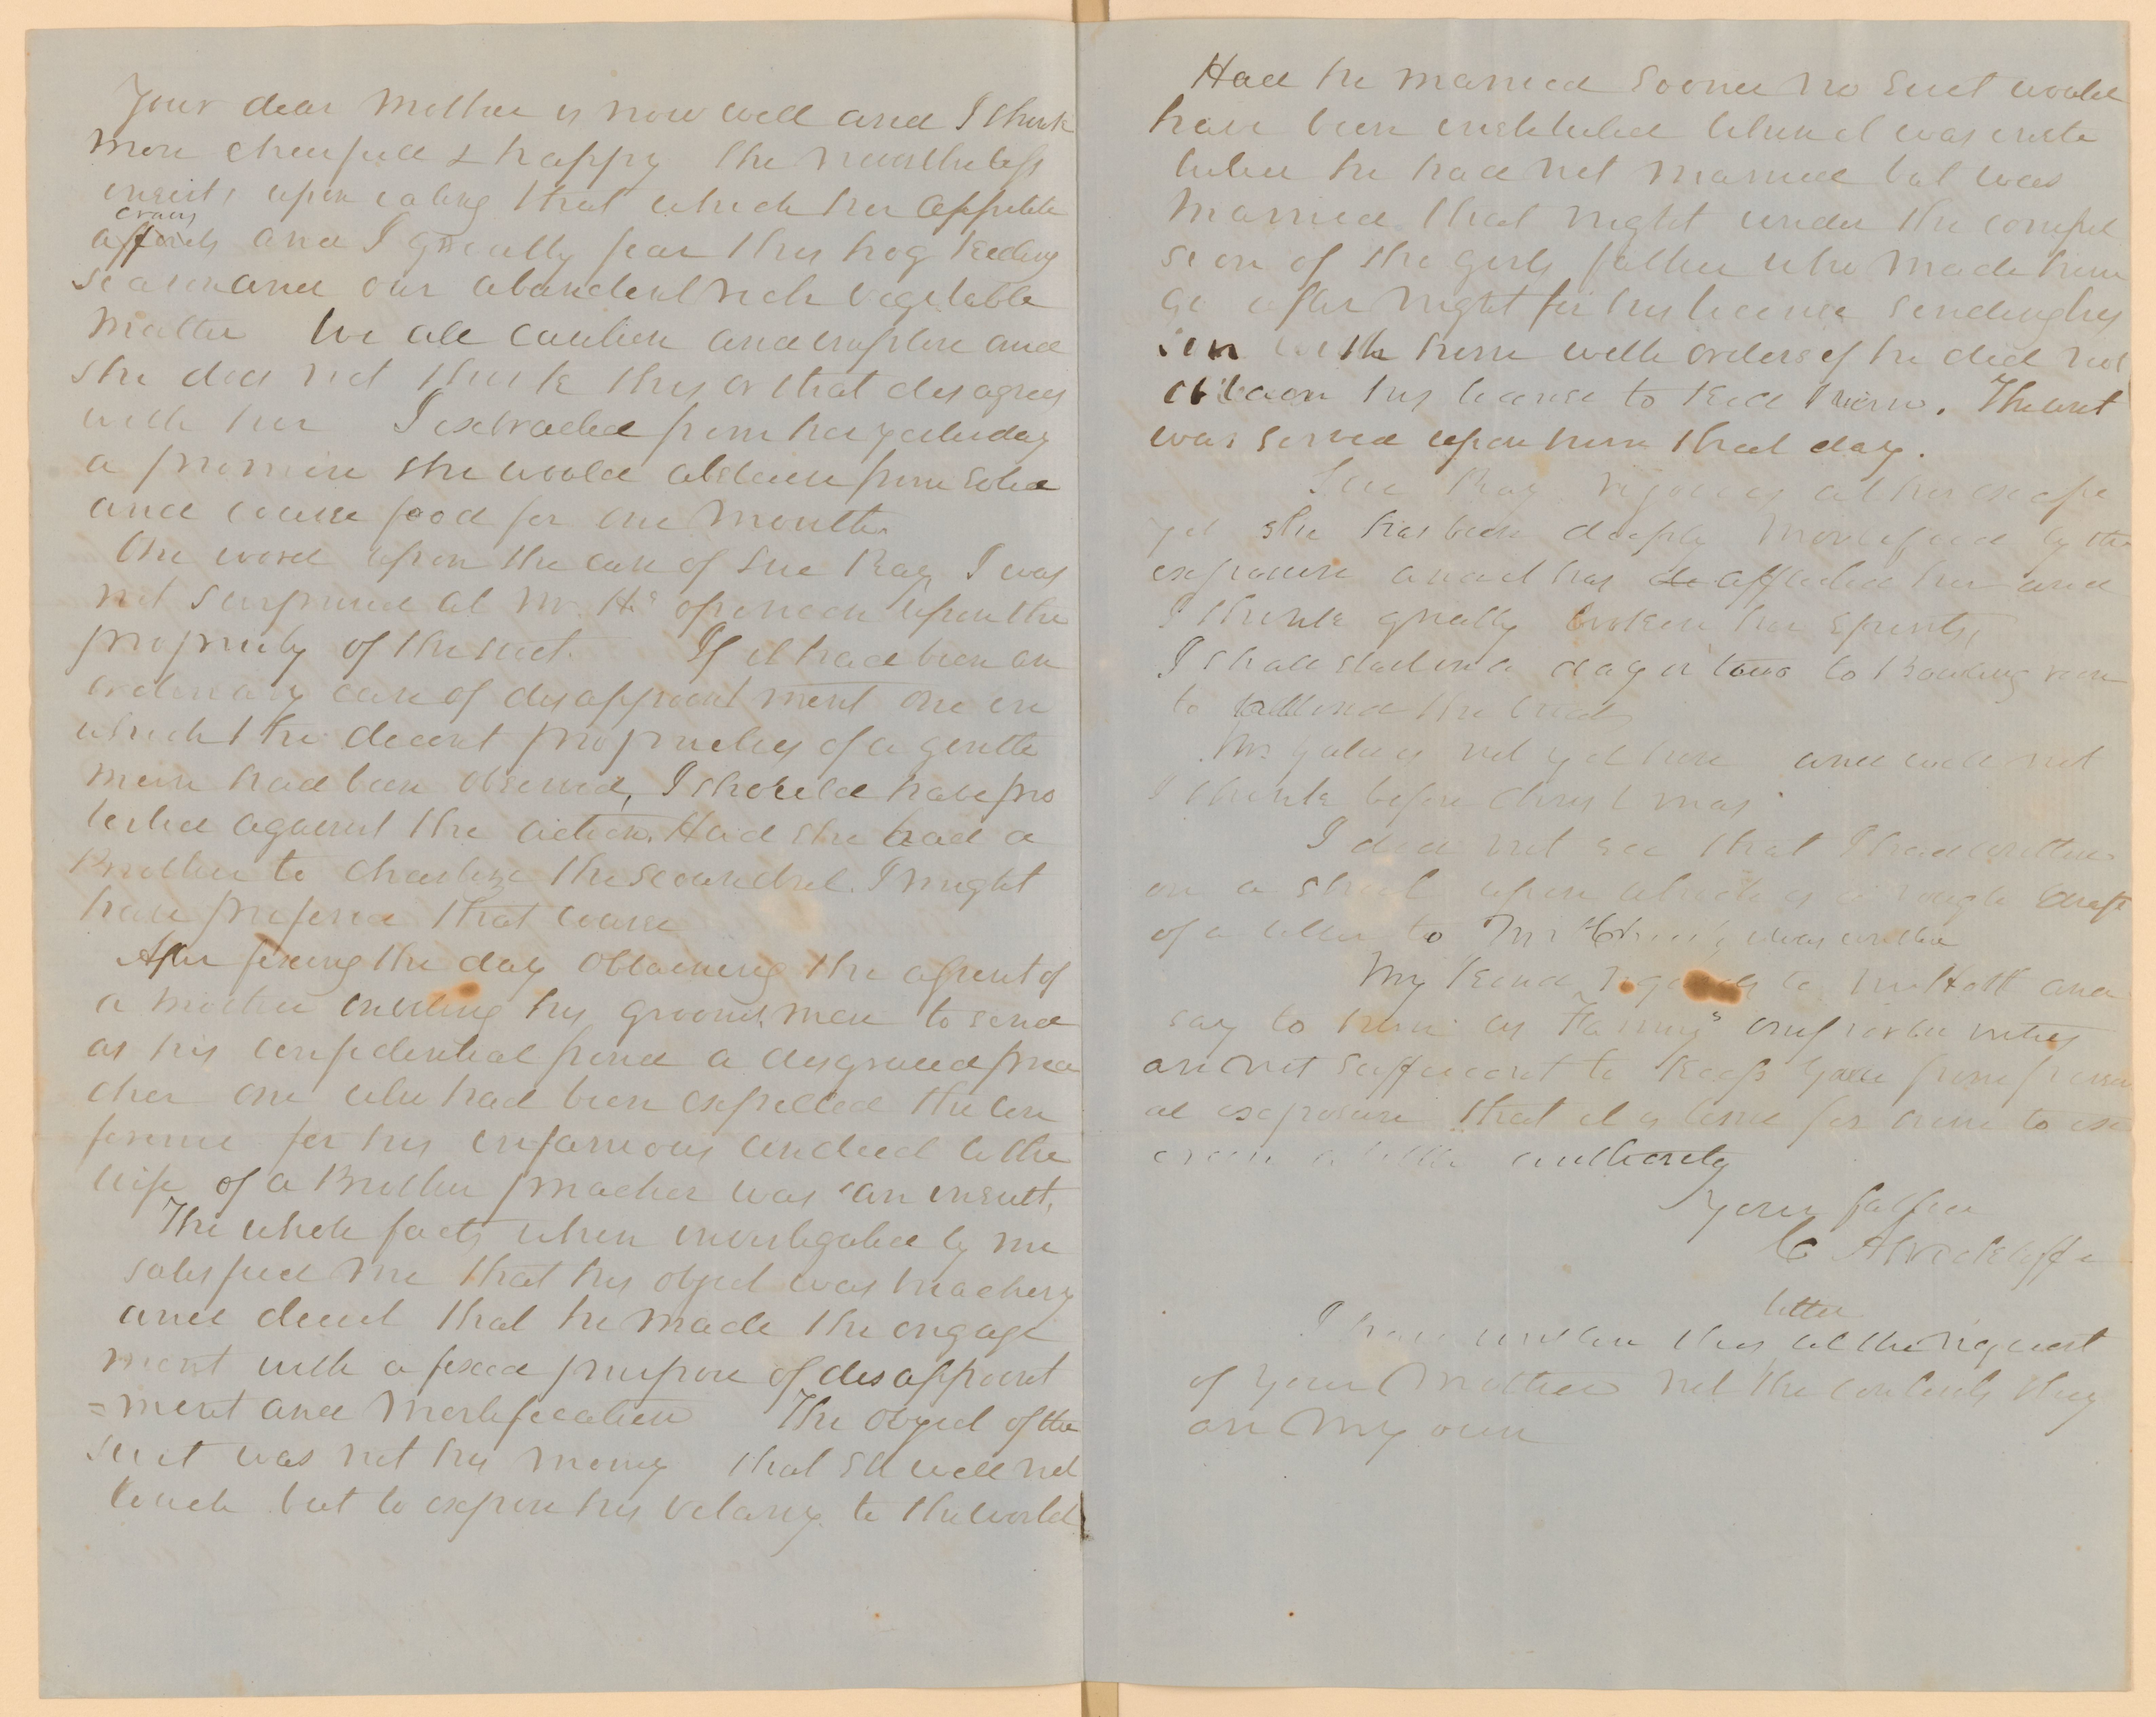 Your dear Mother is now well and I think
more chearfull & happy She nevertheless
insists upon eating that which her appetite
craves
affords and I greatly fear this hog killing
season and our abundent rich vegetable
matter We all caution and implore and
she does not think this or that disagrees
with her I extracted from her yesterday
a promise she would abstain from solid
and coarse food for one month
One word upon the case of Sue Ray I was
not surprised at Mr. Hs opinion upon the
propriety of the suit. If it had been an
ordinary case of disappointment one in
which the decent proprieties of a gentle
man had been observed, I should have pro
tested against the action. Had she had a
Brother to chastize the scoundrel. I might
have prefered that course
After fixing the day obtaining the assent of
a mother inviting his grooms men to send
as his confidential friend a disgraced prea
cher one who had been expelled the con
ference for his infamous conduct to the
wife of a Brother preacher was an insult.
The whole facts when investigated by me
satisfied me that his object was treachery
and deceit that he made the engage
ment with a fixed purpose of disappoint
=ment and mortification The object of the
suit was not his money that sh will not
touch but to expose his velany to the world
Had he married sooner no suit would
have been instituted when it was insti
tuted he had not married but was
married that night under the compul
sion of the girls father who made him
go after night for his license sending his
son with him with orders if he did not
obtain his license to kill him. The writ
was served upon him that day.
Sue Ray rejoices at her escape
yet she has been deeply mortified by the
exposure and it has de affected her and
I think greatly broken her spirits,
I shall start in a day or two to Bowling reen
to attend the trial
Mrs Yulee is not yet here and will not
I think before Christmas
I did not see that I had written
on a sheet upon which is a rough draft
of a letter to Mr was written
My kind regards to Mr Holt and
say to him as Fannys importunities
are not sufficient to keep you from person
al exposure that it is time for him to ex
ercise a little authority
Your father
C A Wickliffe
letter
I have written this at the request
of your Mother not the contents they
are my own